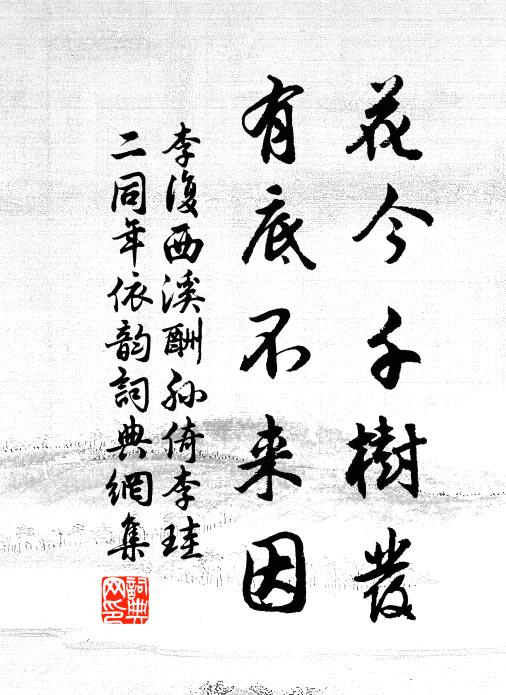 花今千樹發
有底不来因
李復西溪酬孫倚李珪
二同年依韵詞典網集
詞典网印